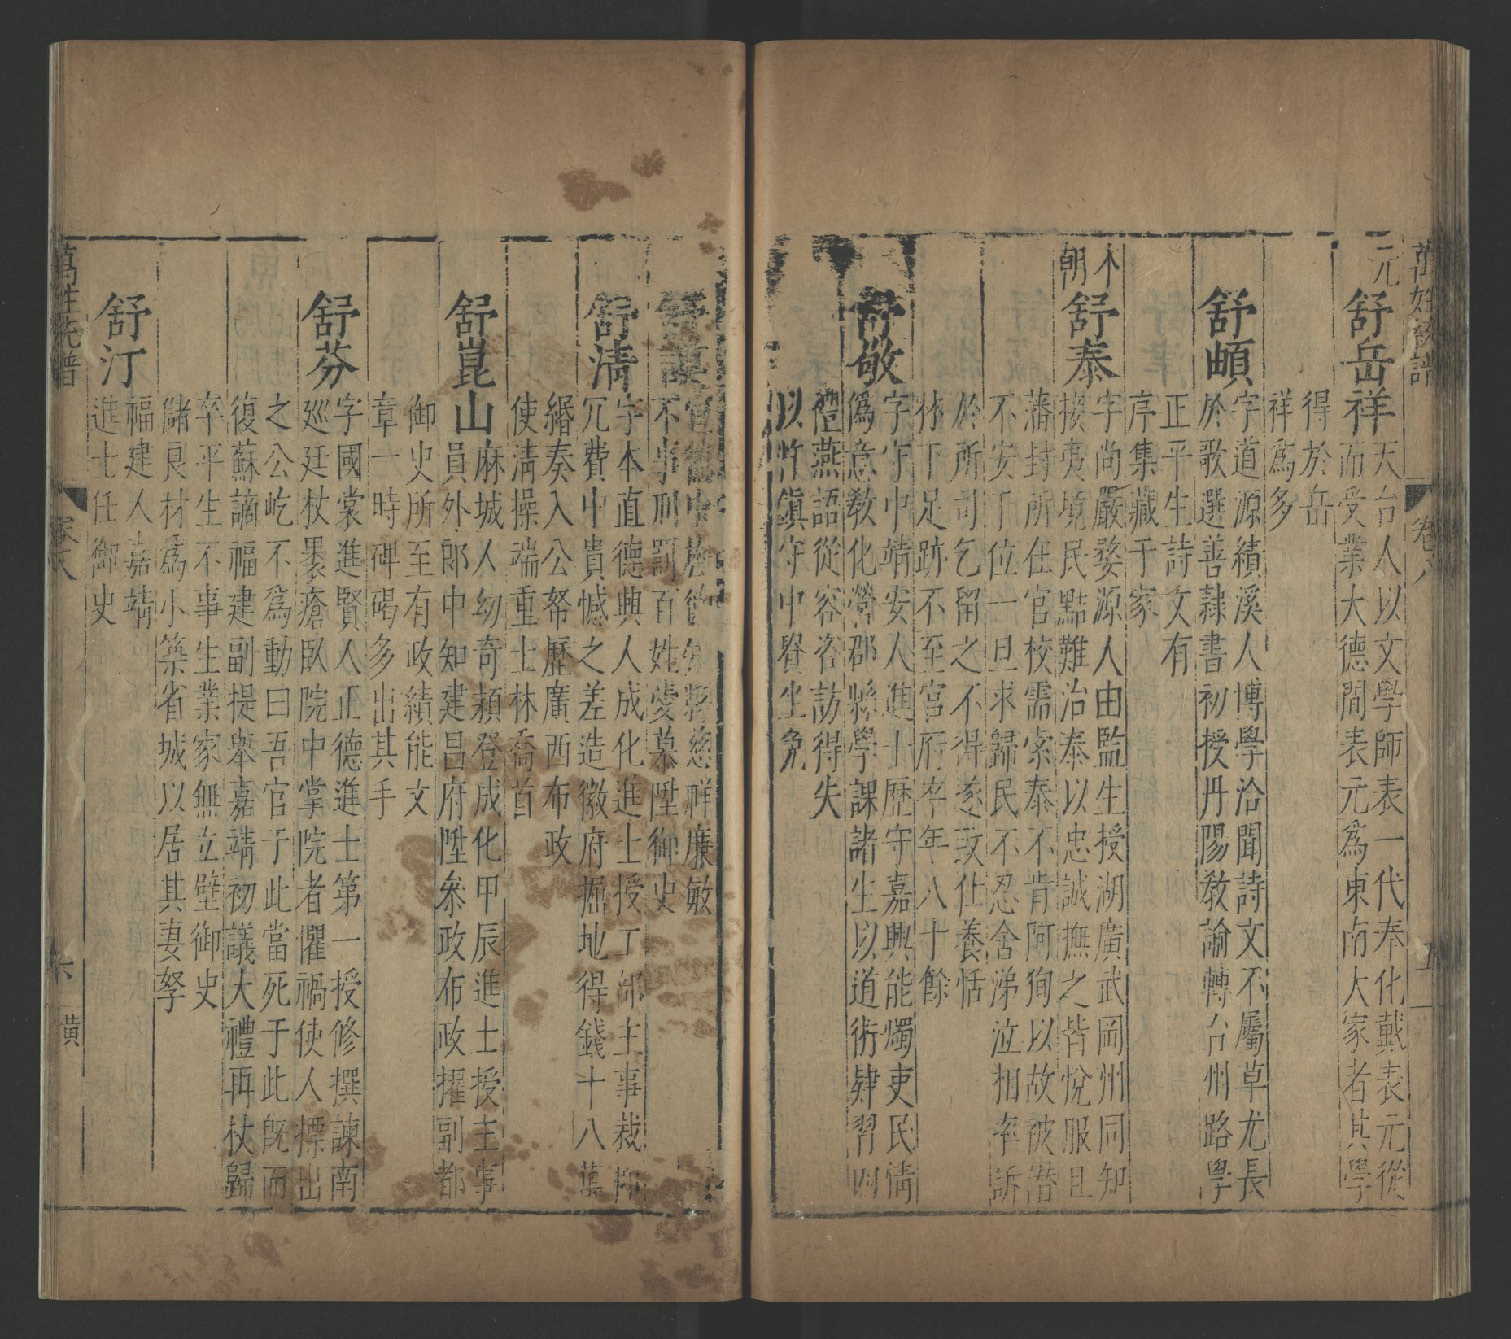 萬姓統譜 卷八 五
元
舒岳祥
天台人以文學師表一代奉化戴表元從
而受業大德間表元為東南大家者其學
得於岳
祥為多
舒頔
字道源績溪人博學洽聞詩文不屬草尤長
於歌選善隷書初授丹陽教諭轉台州路學
正平生詩文有
序集藏于家
本朝
舒泰
字尚嚴婺源人由監生授湖廣武岡州同知
接夷境民點難治泰以忠誠撫之皆悅服且
藩封所在官校需索泰不肯阿狥以故被潜
不安于位一旦求歸民不忍舍涕泣相率訴
於所司乞留之不得遂致仕養恬
林下足跡不至官府卒年八十餘
舒敬
字守中靖安人進士歷守嘉興能燭吏民情
偽意教化營郡縣學課諸生以道術肄習四
禮燕語從容咨訪得失
以忤鎮守中貴生免
舒謨
宣德中
慈祥廉敏
不事刑罰百姓愛慕陞御史
舒清
字本直德興人成化進士授工部主事裁抑
冗費中貴憾之差造徽府掘地得錢十八萬
緡奏入公帑歷廣西布政
使清操端重士林喬首
舒崑山
麻城人幼奇頴登成化甲辰進士授主事
員外郎中知建昌府陞叅政布政擢副都
御史所至有政績能文
章一時碑碣多出其手
舒芬
字國裳進賢人正德進士第一授修撰諫南
廵廷杖褁瘡臥院中掌院者懼禍使人摽出
之公屹不為動曰吾官于此當死于此旣而
復蘇謫福建副提舉嘉靖初議大禮再杖歸
卒平生不事生業家無立壁御史
儲良材為小築省城以居其妻孥
舒汀
福建人嘉靖
進士任御史
萬姓統譜 卷八 六 黃